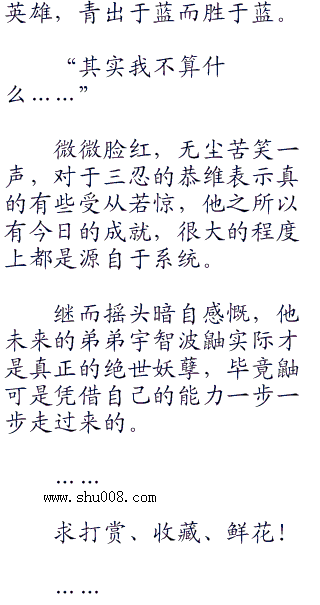 英雄，青出于蓝而胜于蓝。
“其实我不算什
么……”
微微脸红，无尘苦笑一
声，对于三忍的恭维表示真
的有些受从若惊，他之所以
有今日的成就，很大的程度
上都是源自于系统。
继而摇头暗自感慨，他
未来的弟弟宇智波鼬实际才
是真正的绝世妖孽，毕竟鼬
可是凭借自己的能力一步一
步走过来的。
……
www.shu008.com
求打赏、收藏、鲜花！
……